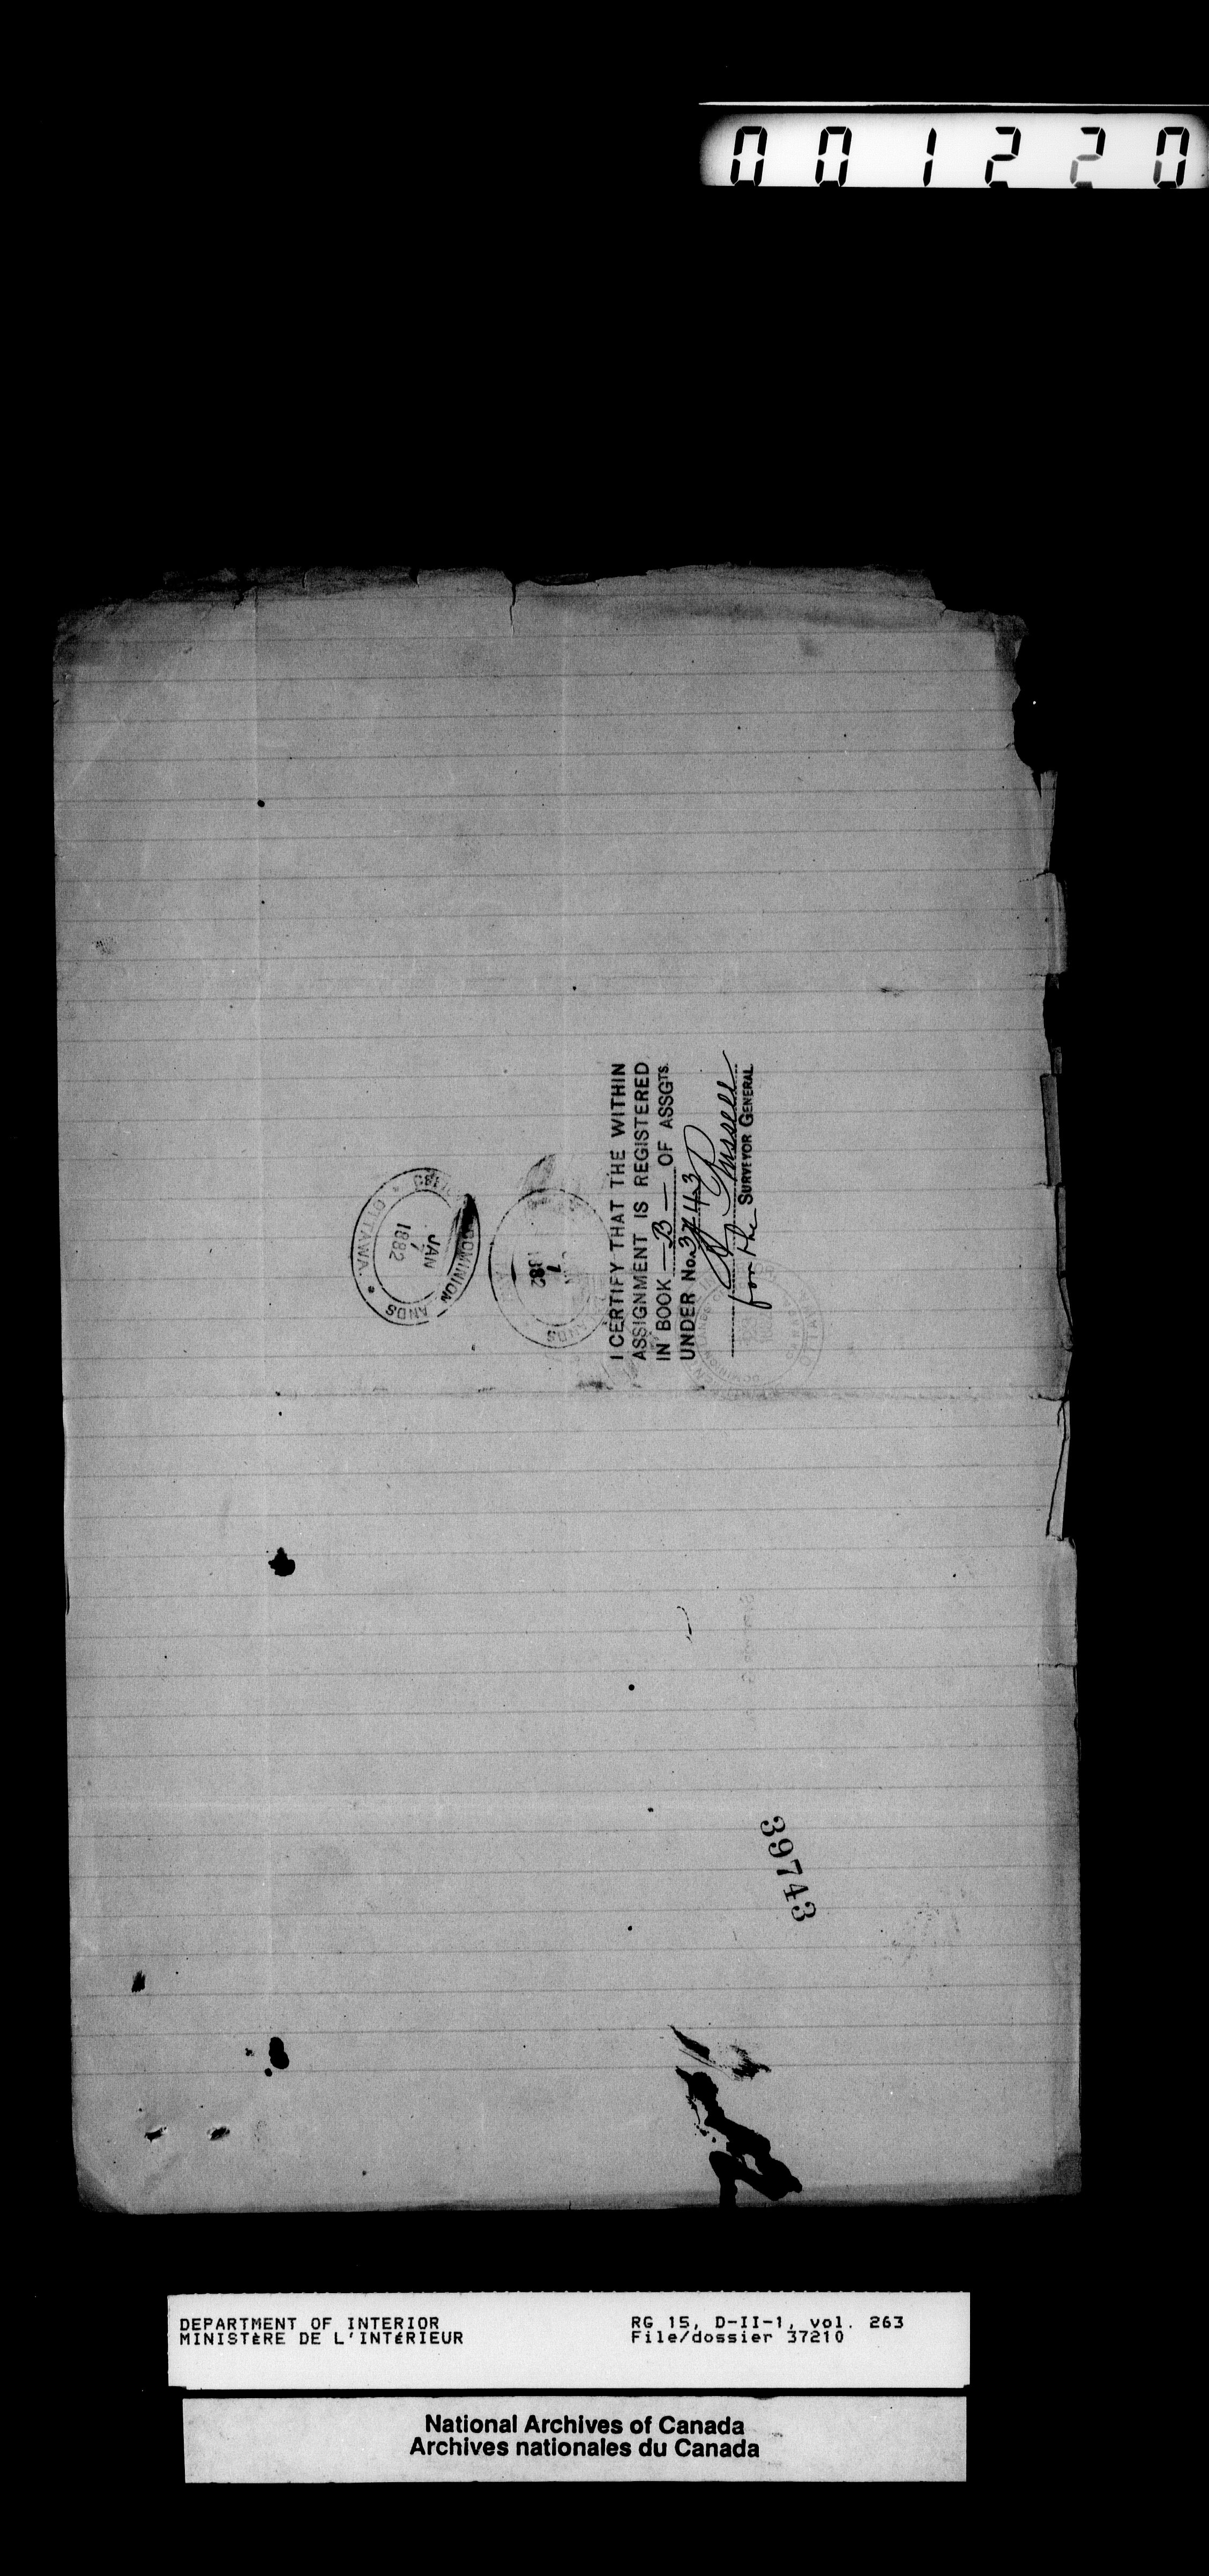 001220
I CERTIFY THAT THE WITHIN
ASSIGNMENT IS REGISTERED
IN BOOK — B — OF ASSGTS.
UNDER No. 3743
Russell
for the SURVEYOR GENERAL
DOMINION LANDS
OTTAWA.
JAN
7
1882
7
1882
39743
DEPARTMENT OF INTERIOR
MINISTÈRE DE L'INTÉRIEUR
RG 15, D-II-1, vol. 263
File/dossier 37210
National Archives of Canada
Archives nationales du Canada